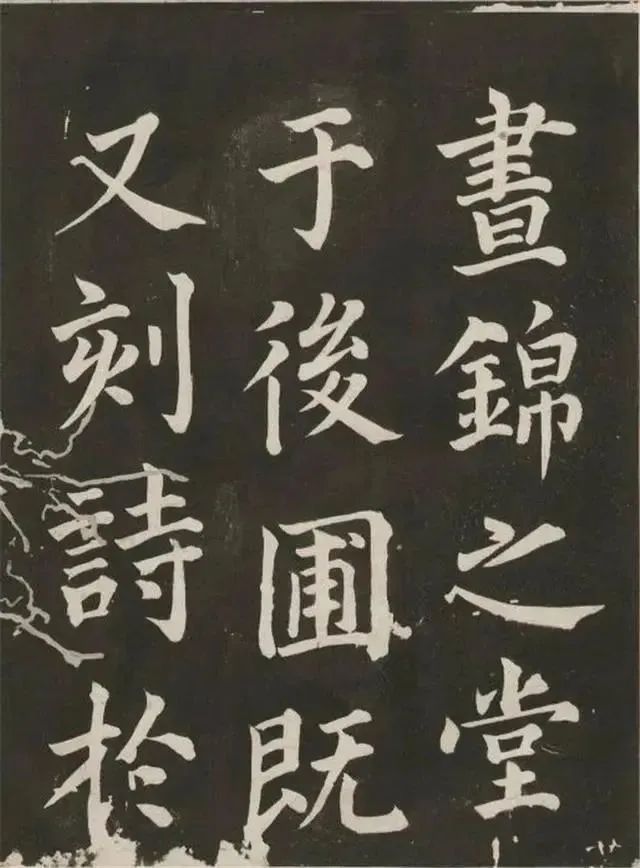 晝錦之堂
于後圃既
又刻詩於